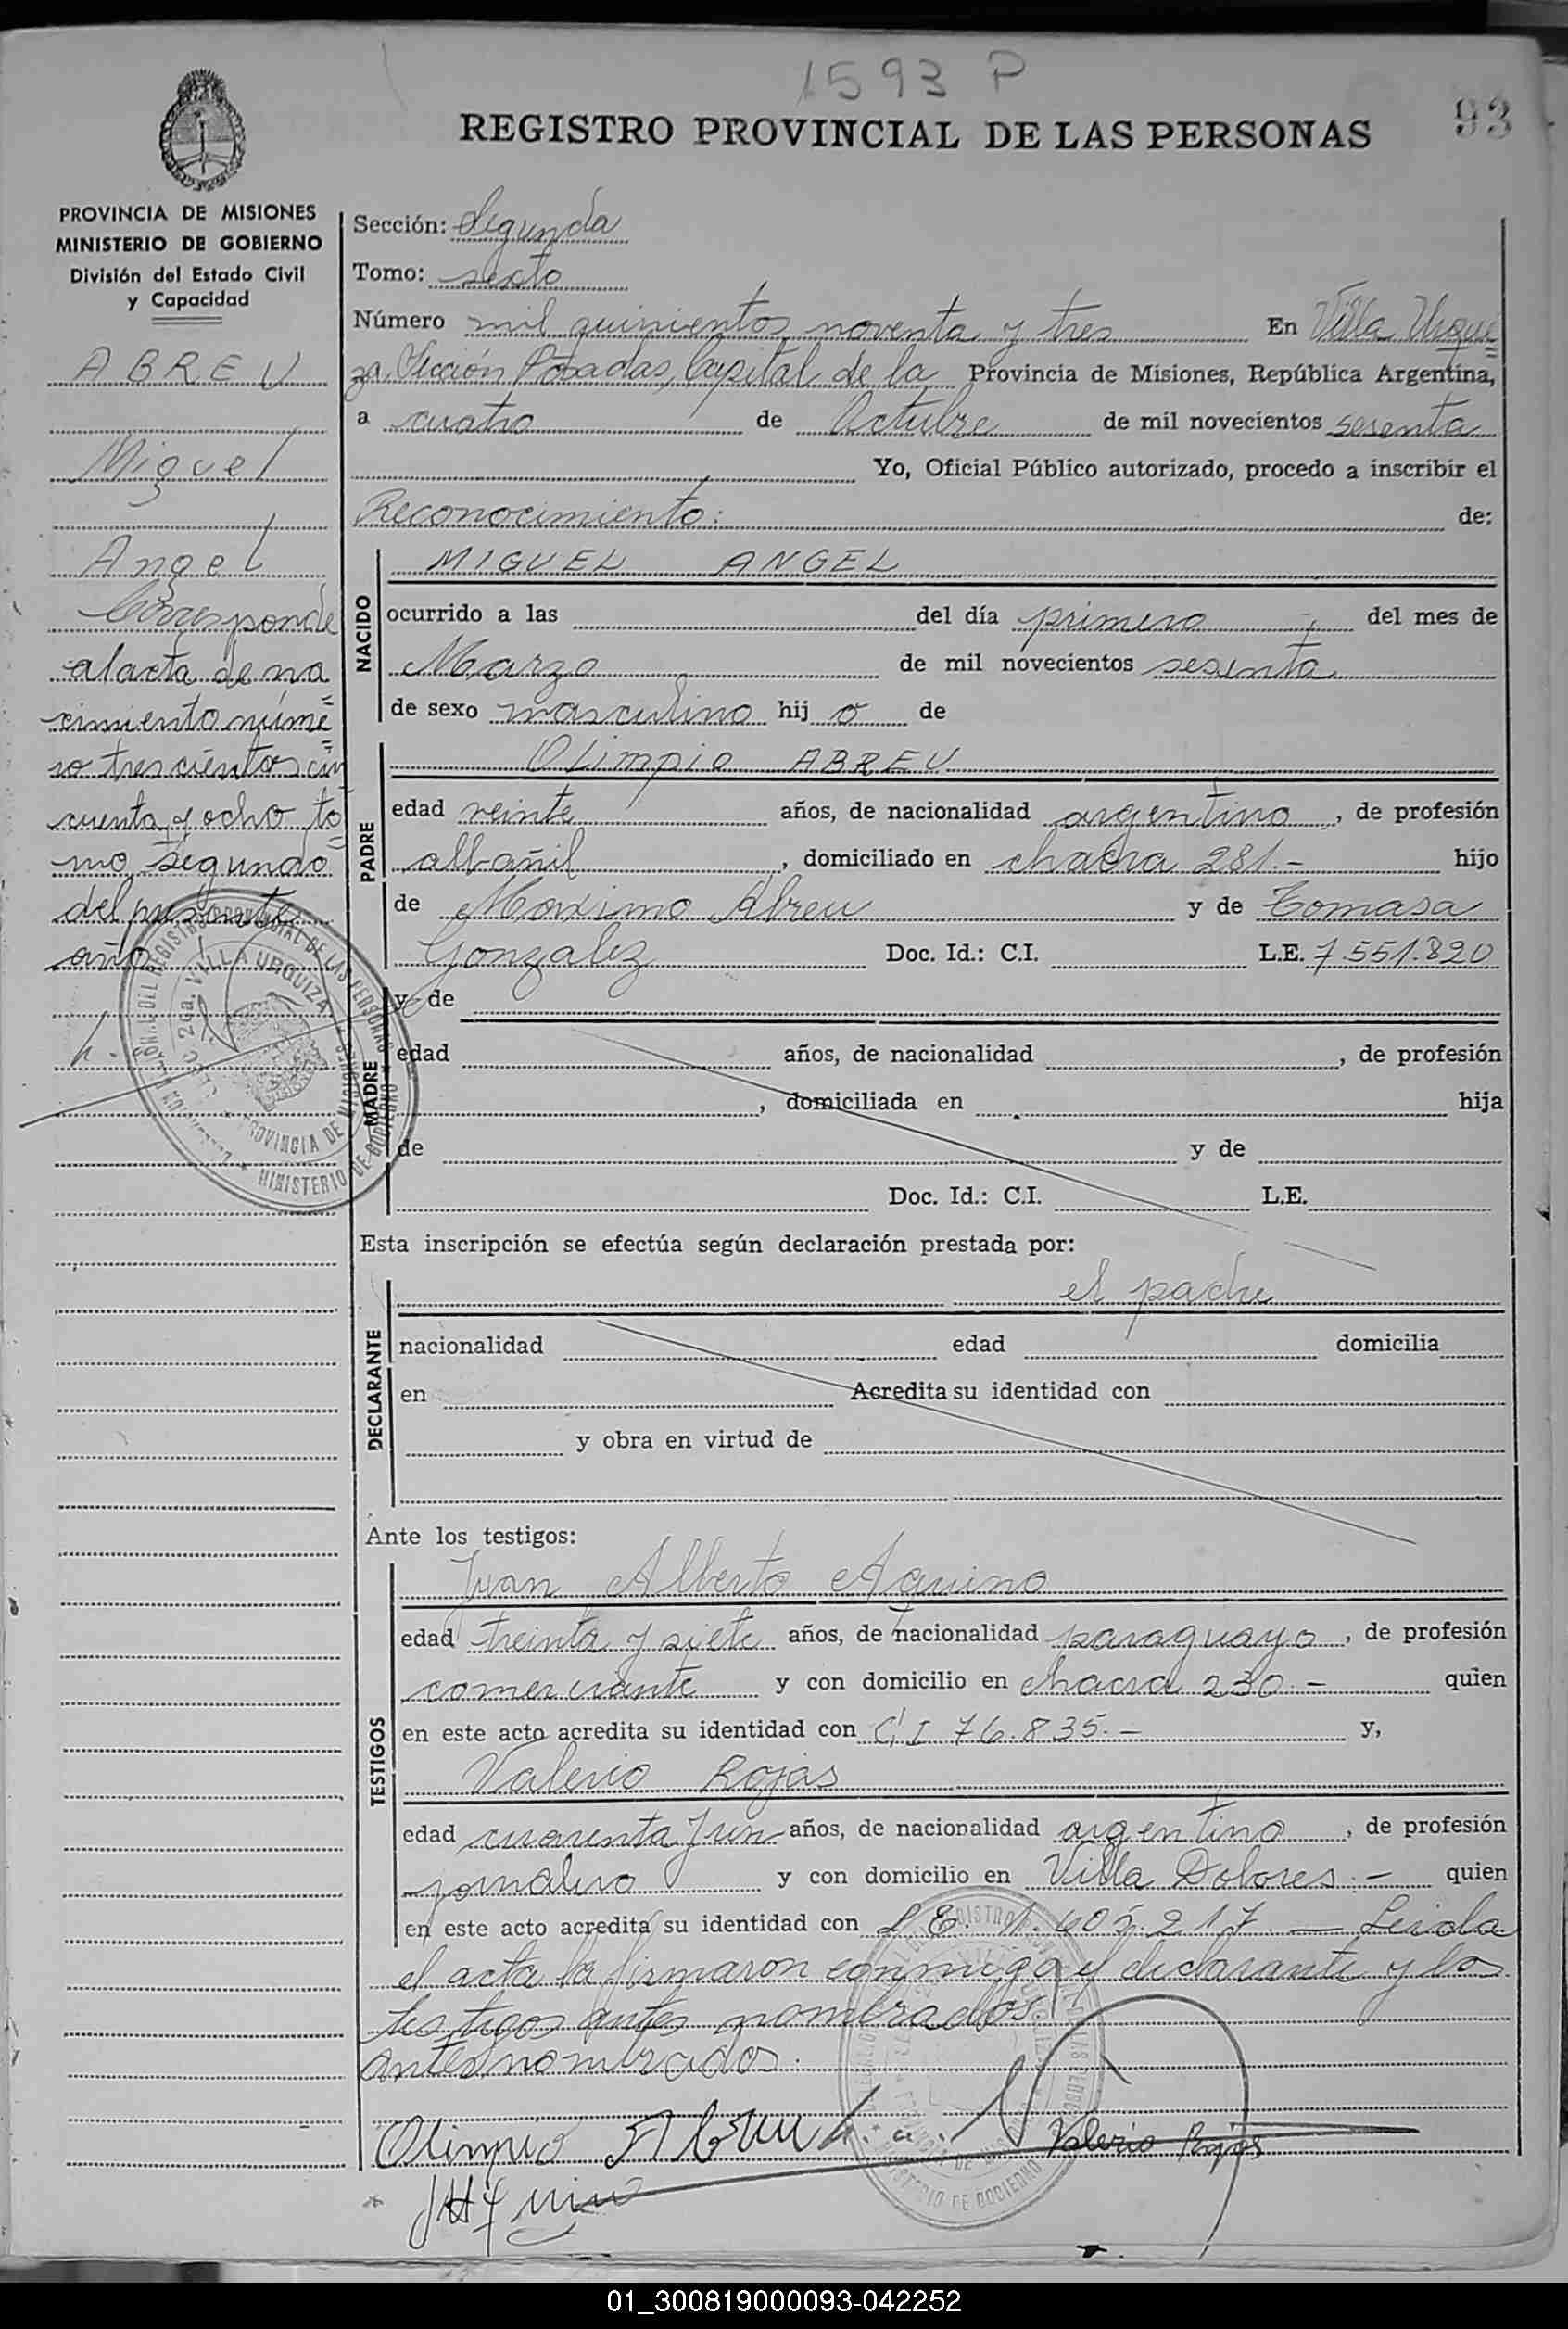 1593 P
REGISTRO PROVINCIAL DE LAS PERSONAS
93
PROVINCIA DE MISIONES
MINISTERIO DE GOBIERNO
División del Estado Civil
y Capacidad
ABREU
Miguel
Angel
Corresponde
al acta de na
cimiento núme
ro trescientos cin
cuenta y ocho to
mo segundo
del presente
año
Sección: Segunda
Tomo: sexto
Número mil quinientos noventa y tres En Villa Urqui
za, Sección Posadas, Capital de la Provincia de Misiones, República Argentina,
a cuatro de Octubre de mil novecientos sesenta
Yo, Oficial Público autorizado, procedo a inscribir el
Reconocimiento: de:
NACIDO
MIGUEL ANGEL
ocurrido a las del día primero del mes de
Marzo de mil novecientos sesenta
de sexo masculino hij o de
PADRE
OLimpio ABREU
edad veinte años, de nacionalidad argentino, de profesión
albañil, domiciliado en chacra 281.- hijo
de Maximo Abreu y de Tomasa
Gonzalez Doc. Id.: C.I. L.E. 7.551.820
MADRE
y de
edad años, de nacionalidad , de profesión
, domiciliada en hija
de y de
Doc. Id.: C.I. L.E.
Esta inscripción se efectúa según declaración prestada por:
DECLARANTE
el padre
nacionalidad edad domicilia
en Acredita su identidad con
y obra en virtud de
Ante los testigos:
TESTIGOS
Juan Alberto Aquino
edad treinta y siete años, de nacionalidad paraguayo, de profesión
comerciante y con domicilio en chacra 230.- quien
en este acto acredita su identidad con C.I 76.835.- y,
Valerio Rojas
edad cuarenta y un años, de nacionalidad argentino, de profesión
jornalero y con domicilio en Villa Dolores.- quien
en este acto acredita su identidad con L.E. 1.605.217.— Leida
el acta la firmaron conmigo el declarante y los
testigos antes nombrados
antes nombrados.
Olimpio Abreu
Valerio Rojas
01_300819000093-042252